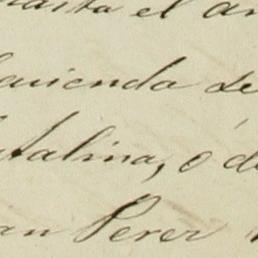 hasta el an
hacienda de
atalina, ó de
an Perez